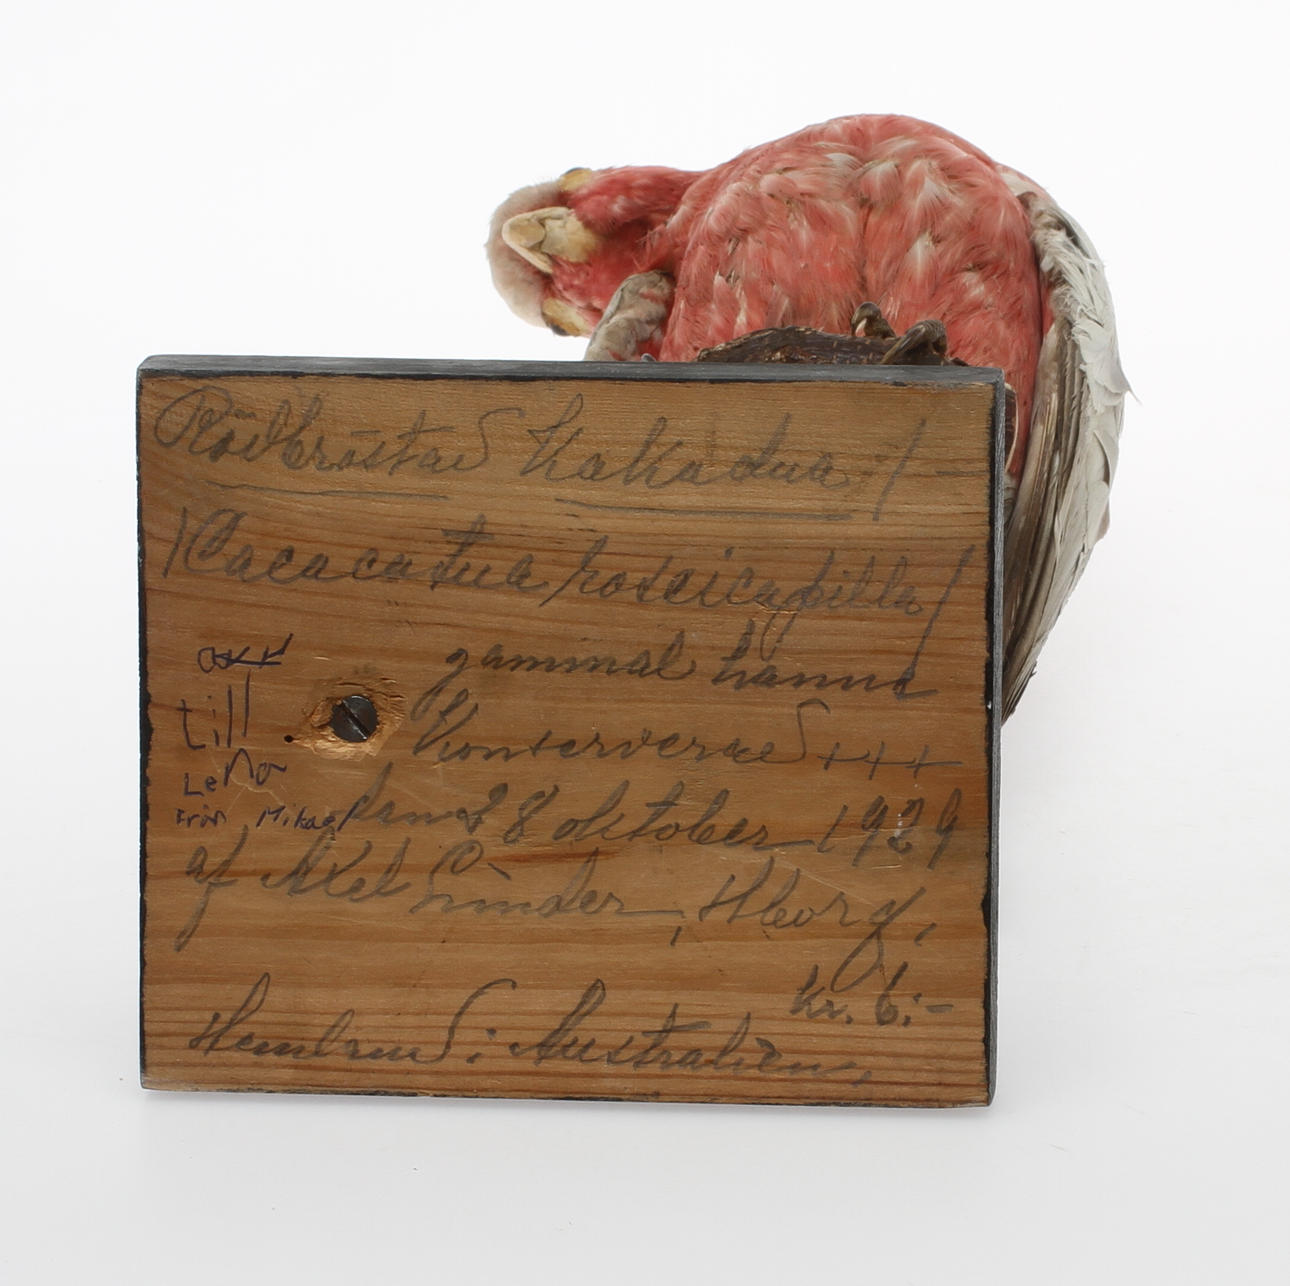 Rödbröstad Kakadua /-
/Cacacatua roseicapilla/
gammal hanne
Konserverad +++
den 28 oktober 1929
af Axel Sunder, Hborg,
kr. 6:-
Hemland: Australien,
att
till
Lena
Från Mikael